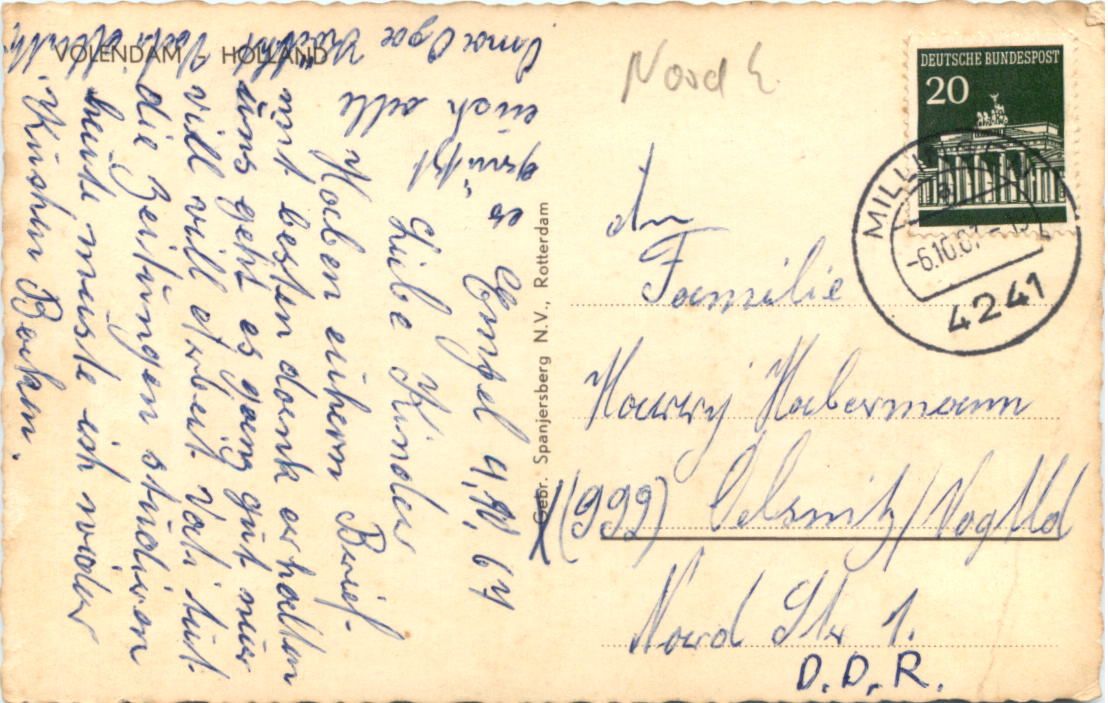 VOLENDAM - HOLLAND
Empel 4,10,67
Liebe Kinder
Haben euhern Brief
mit besten dank erhalten
uns geht es ganz gut nur
vill vill Arbeit. Vati tut
die Zeitungen studiren
heute muste ich wider
Kushen Backen.
es grüßt
euch alle
Oma Opa
Gebr. Spanjersberg N.V., Rotterdam
Nord
DEUTSCHE BUNDESPOST
20
MILL
-6.10.67
4241
An
Familie
Harry Habermann
(999) Oelsnitz/Vogtld
Nord Str 1.
D.D.R.